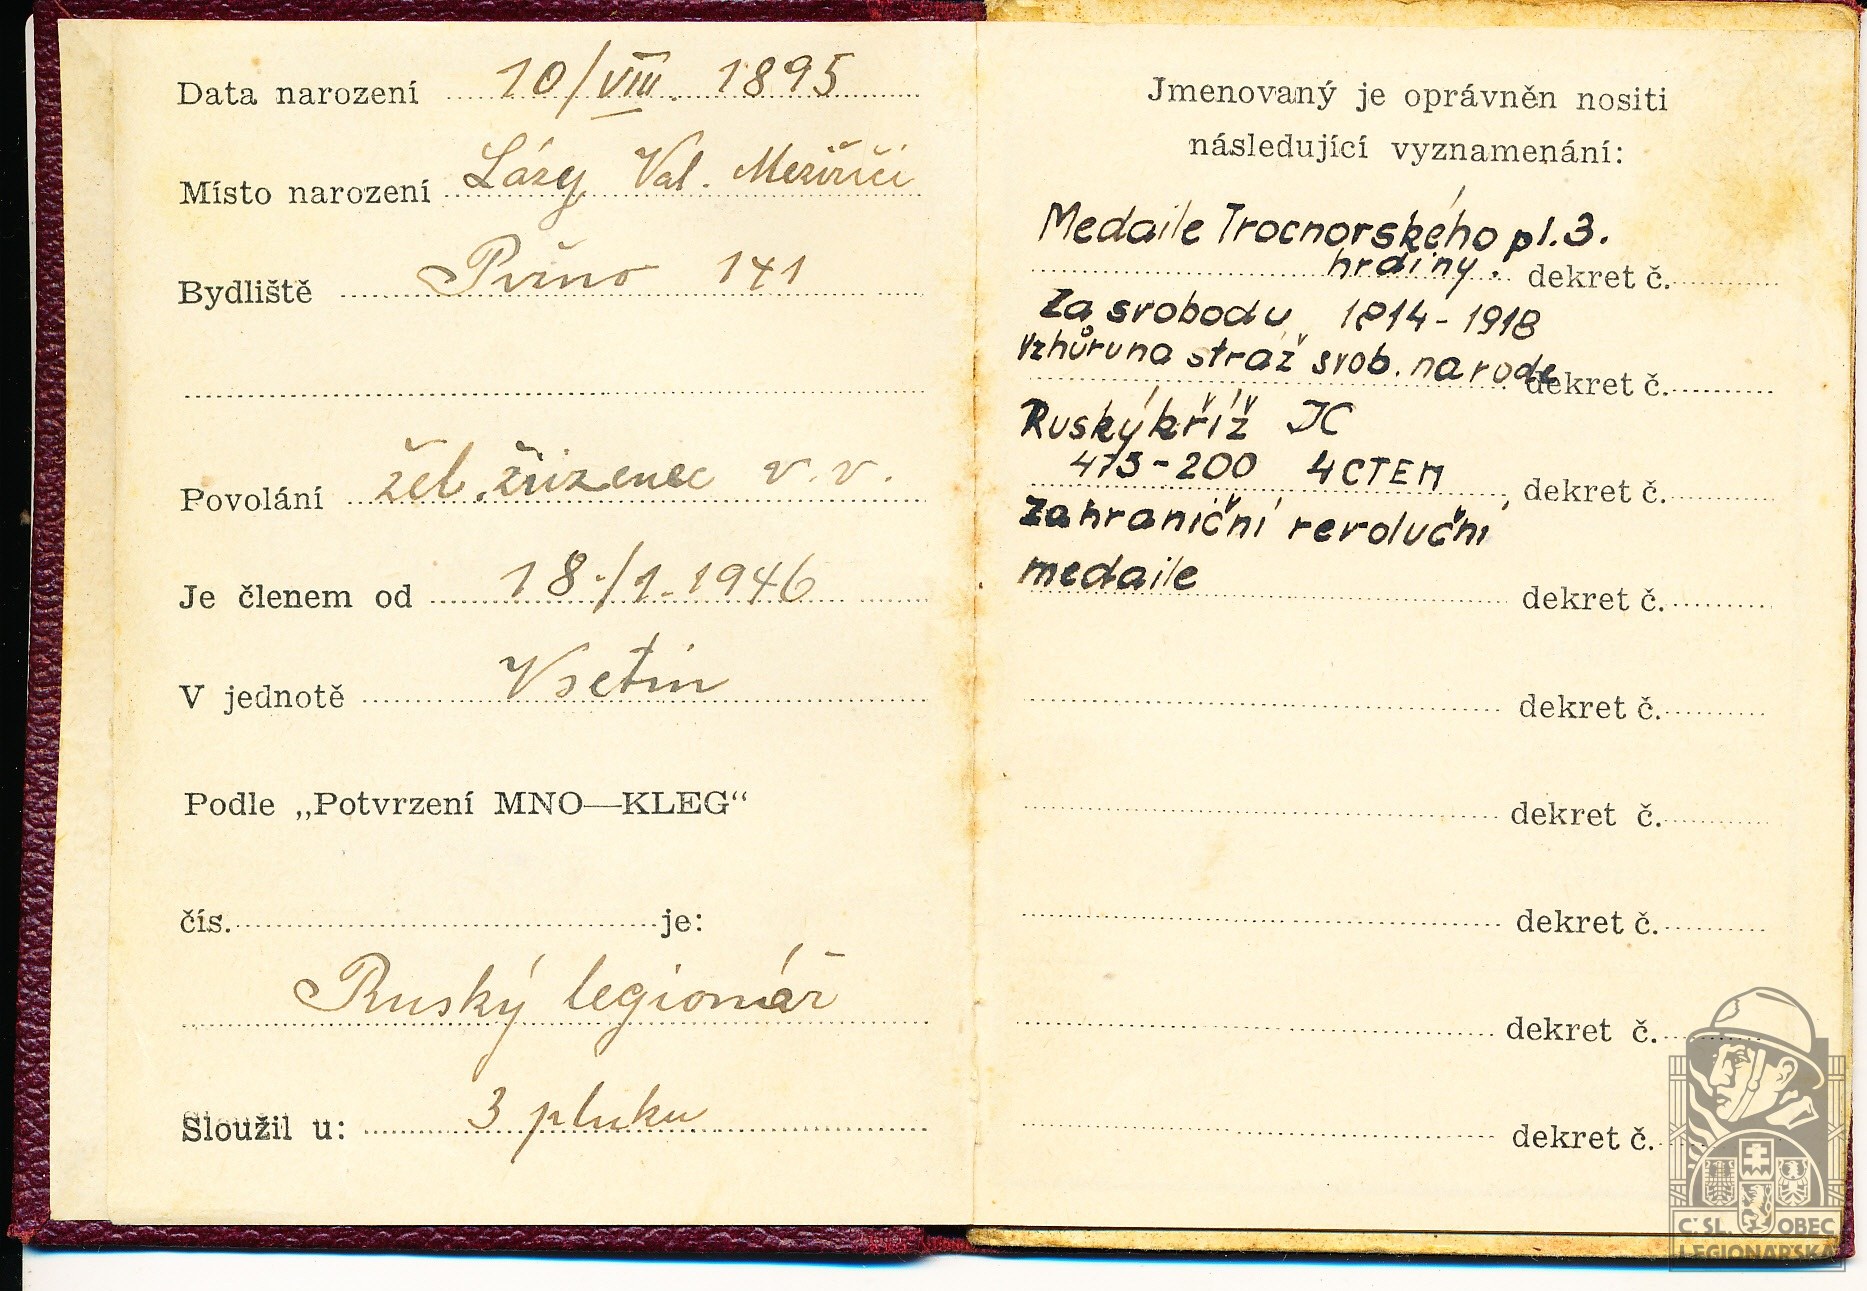 Data narození 10/VIII. 1895
Místo narození Lázy Val. Meziříčí
Bydliště 141
Povolání žel. zřízenec v. v.
Je členem od 18./1. 1946
V jednotě Vsetín
Podle „Potvrzení MNO—KLEG“
čís. je:
Ruský legionář
Sloužil u: 3 pluku
Jmenovaný je oprávněn nositi
následující vyznamenání:
Medaile Trocnorského pl. 3.
hrdiny. dekret č.
Za svobodu 1914-1918
Vzhůru na stráž svob. narode
dekret č.
Ruský kříž
475-200 4 CTEM dekret č.
Zahraniční revoluční
medaile dekret č.
dekret č.
dekret č.
dekret č.
dekret č.
dekret č.
Č.SL. OBEC
LEGIONÁŘSKÁ